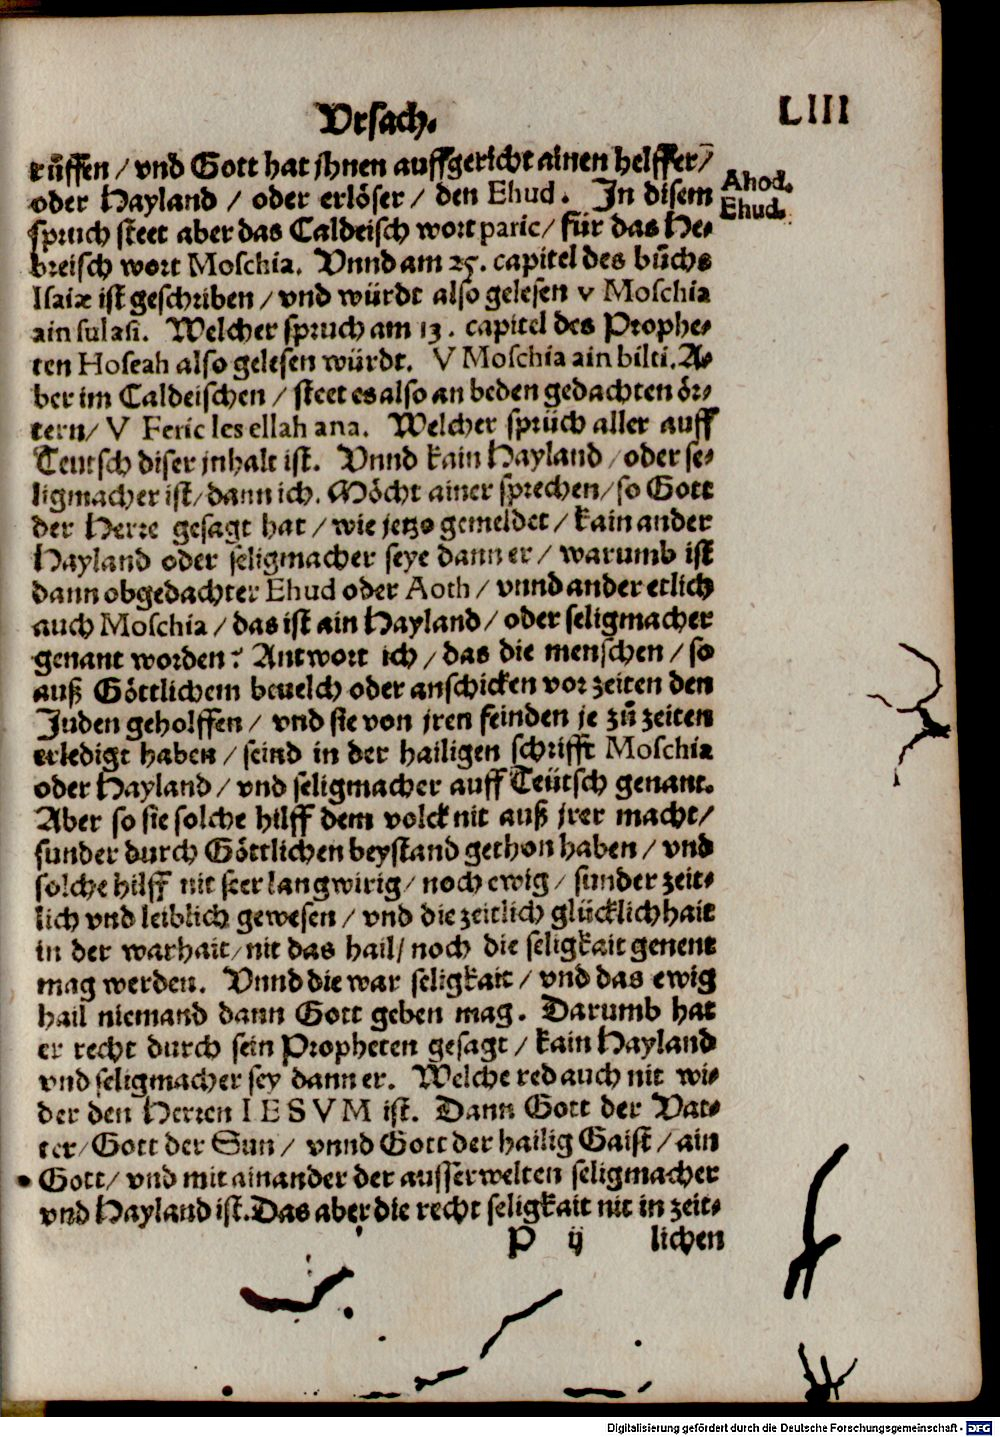 Vrsach.
LIII
růffen / vnd Gott hat jhnen auffgericht ainen helffer /
oder Hayland / oder erlöser / den Ehud. In disem
Ahod.
Ehud.
spruch steet aber das Caldeisch wort paric / für das He-
breisch wort Moschia. Vnnd am 25. capitel des bůchs
Isaiæ ist geschriben / vnd würdt also gelesen v Moschia
ain sulasi. Welcher spruch am 13. capitel des Prophe-
ten Hoseah also gelesen würdt. V Moschia ain bilti. A-
ber im Caldeischen / steet es also an beden gedachten ör-
tern / V Feric les ellah ana. Welcher sprüch aller auff
Teutsch diser jnhalt ist. Vnnd kain Hayland / oder se-
ligmacher ist / dann ich. Möcht ainer sprechen / so Gott
der Herre gesagt hat / wie jetzo gemeldet / kain ander
Hayland oder seligmacher seye dann er / warumb ist
dann obgedachter Ehud oder Aoth / vnnd ander etlich
auch Moschia / das ist ain Hayland / oder seligmacher
genant worden? Antwort ich / das die menschen / so
auß Göttlichem beuelch oder anschicken vor zeiten den
Juden geholffen / vnd sie von jren feinden je zů zeiten
erledigt haben / seind in der hailigen schrifft Moschia
oder Hayland / vnd seligmacher auff Teütsch genant.
Aber so sie solche hilff dem volck nit auß jrer macht /
sunder durch Göttlichen beystand gethon haben / vnd
solche hilff nit seer langwirig / noch ewig / sunder zeit-
lich vnd leiblich gewesen / vnd die zeitlich glücklichhait
in der warhait / nit das hail / noch die seligkait genent
mag werden. Vnnd die war seligkait / vnd das ewig
hail niemand dann Gott geben mag. Darumb hat
er recht durch sein Propheten gesagt / kain Hayland
vnd seligmacher sey dann er. Welche red auch nit wi-
der den Herren IESVM ist. Dann Gott der Vat-
ter / Gott der Sun / vnnd Gott der hailig Gaist / ain
Gott / vnd mit ainander der ausserwelten seligmacher
vnd Hayland ist. Das aber die recht seligkait nit in zeit-
P ij lichen
Digitalisierung gefördert durch die Deutsche Forschungsgemeinschaft - DFG